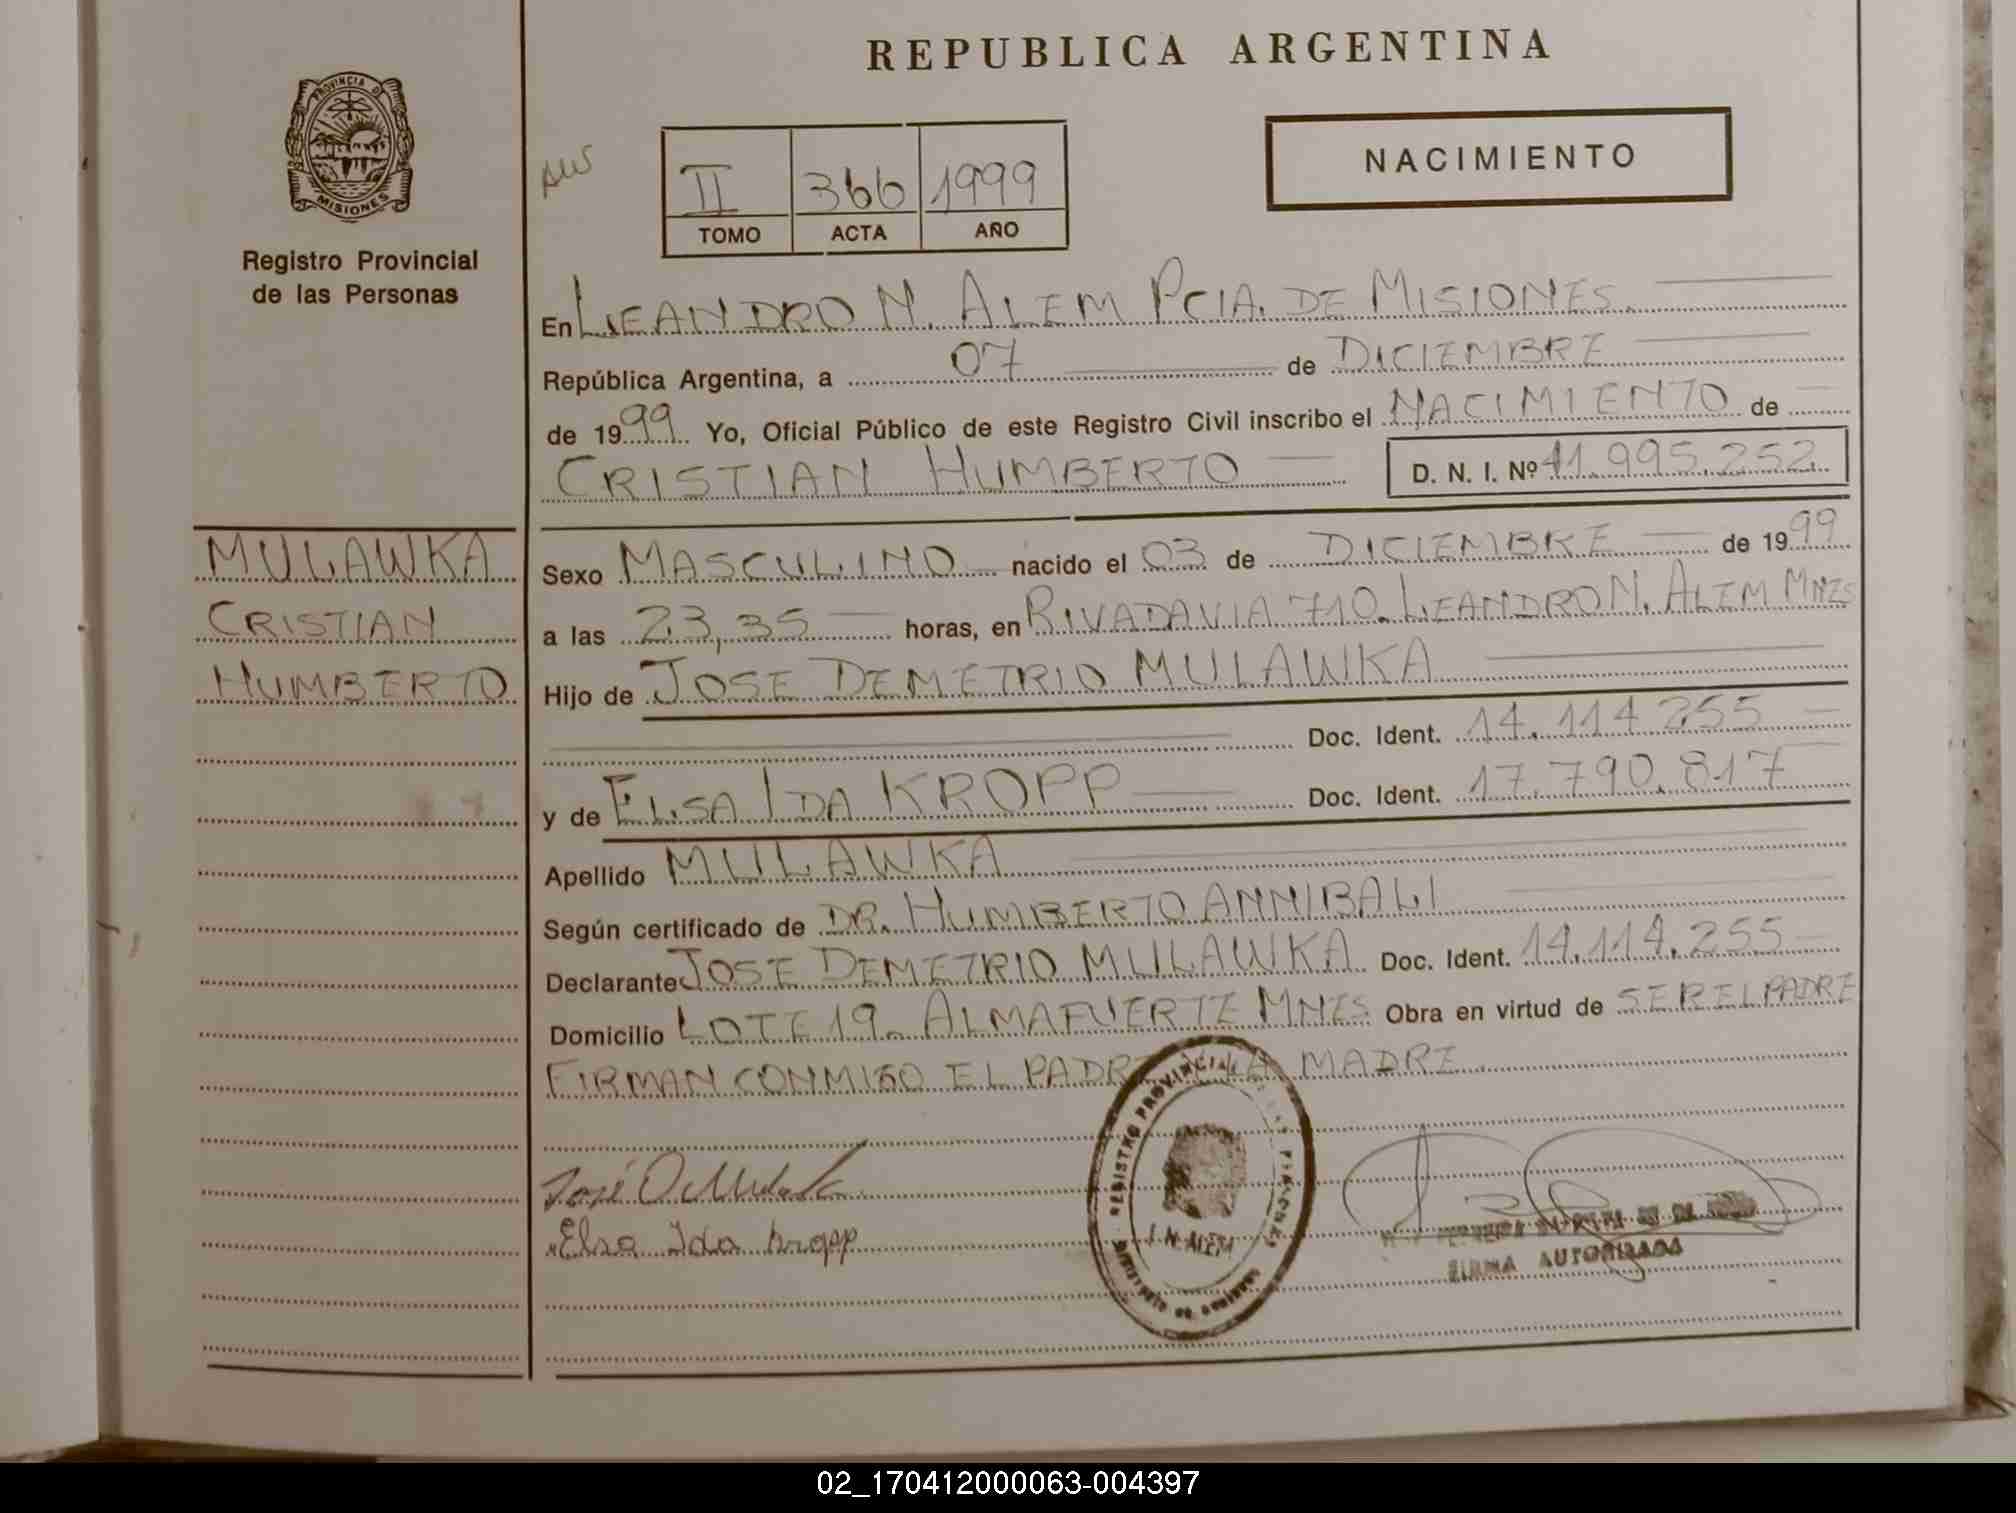 REPUBLICA ARGENTINA
PROVINCIA D MISIONES
Registro Provincial
de las Personas
NACIMIENTO
II 366 1999
TOMO ACTA AÑO
En LEANDRO N. ALEM PCIA. DE MISIONES.
República Argentina, a 07 de DICIEMBRE
de 1999 Yo, Oficial Público de este Registro Civil inscribo el NACIMIENTO de
CRISTIAN HUMBERTO D. N. I. Nº 41.995.252.
MULAWKA
CRISTIAN
HUMBERTO
Sexo MASCULINO nacido el 03 de DICIEMBRE de 1999
a las 23,35 horas, en RIVADAVIA 710. LEANDRO N. ALEM MNES
Hijo de JOSE DEMETRIO MULAWKA
Doc. Ident. 14.114.255
y de ELSA IDA KROPP Doc. Ident. 17.790.817
Apellido MULAWKA
Según certificado de DR. HUMBERTO ANNIBALI
Declarante JOSE DEMETRIO MULAWKA Doc. Ident. 14.114.255
Domicilio LOTE 19. ALMAFUERTE MNES Obra en virtud de SER EL PADRE
FIRMAN CONMIGO EL PADRE LA MADRE
José D Mulawka
Elsa Ida Kropp
REGISTRO PROVINCIAL DE LAS PERSONAS
L. N. ALEM
MINISTERIO DE GOBIERNO
FIRMA AUTORIZADA
02_170412000063-004397